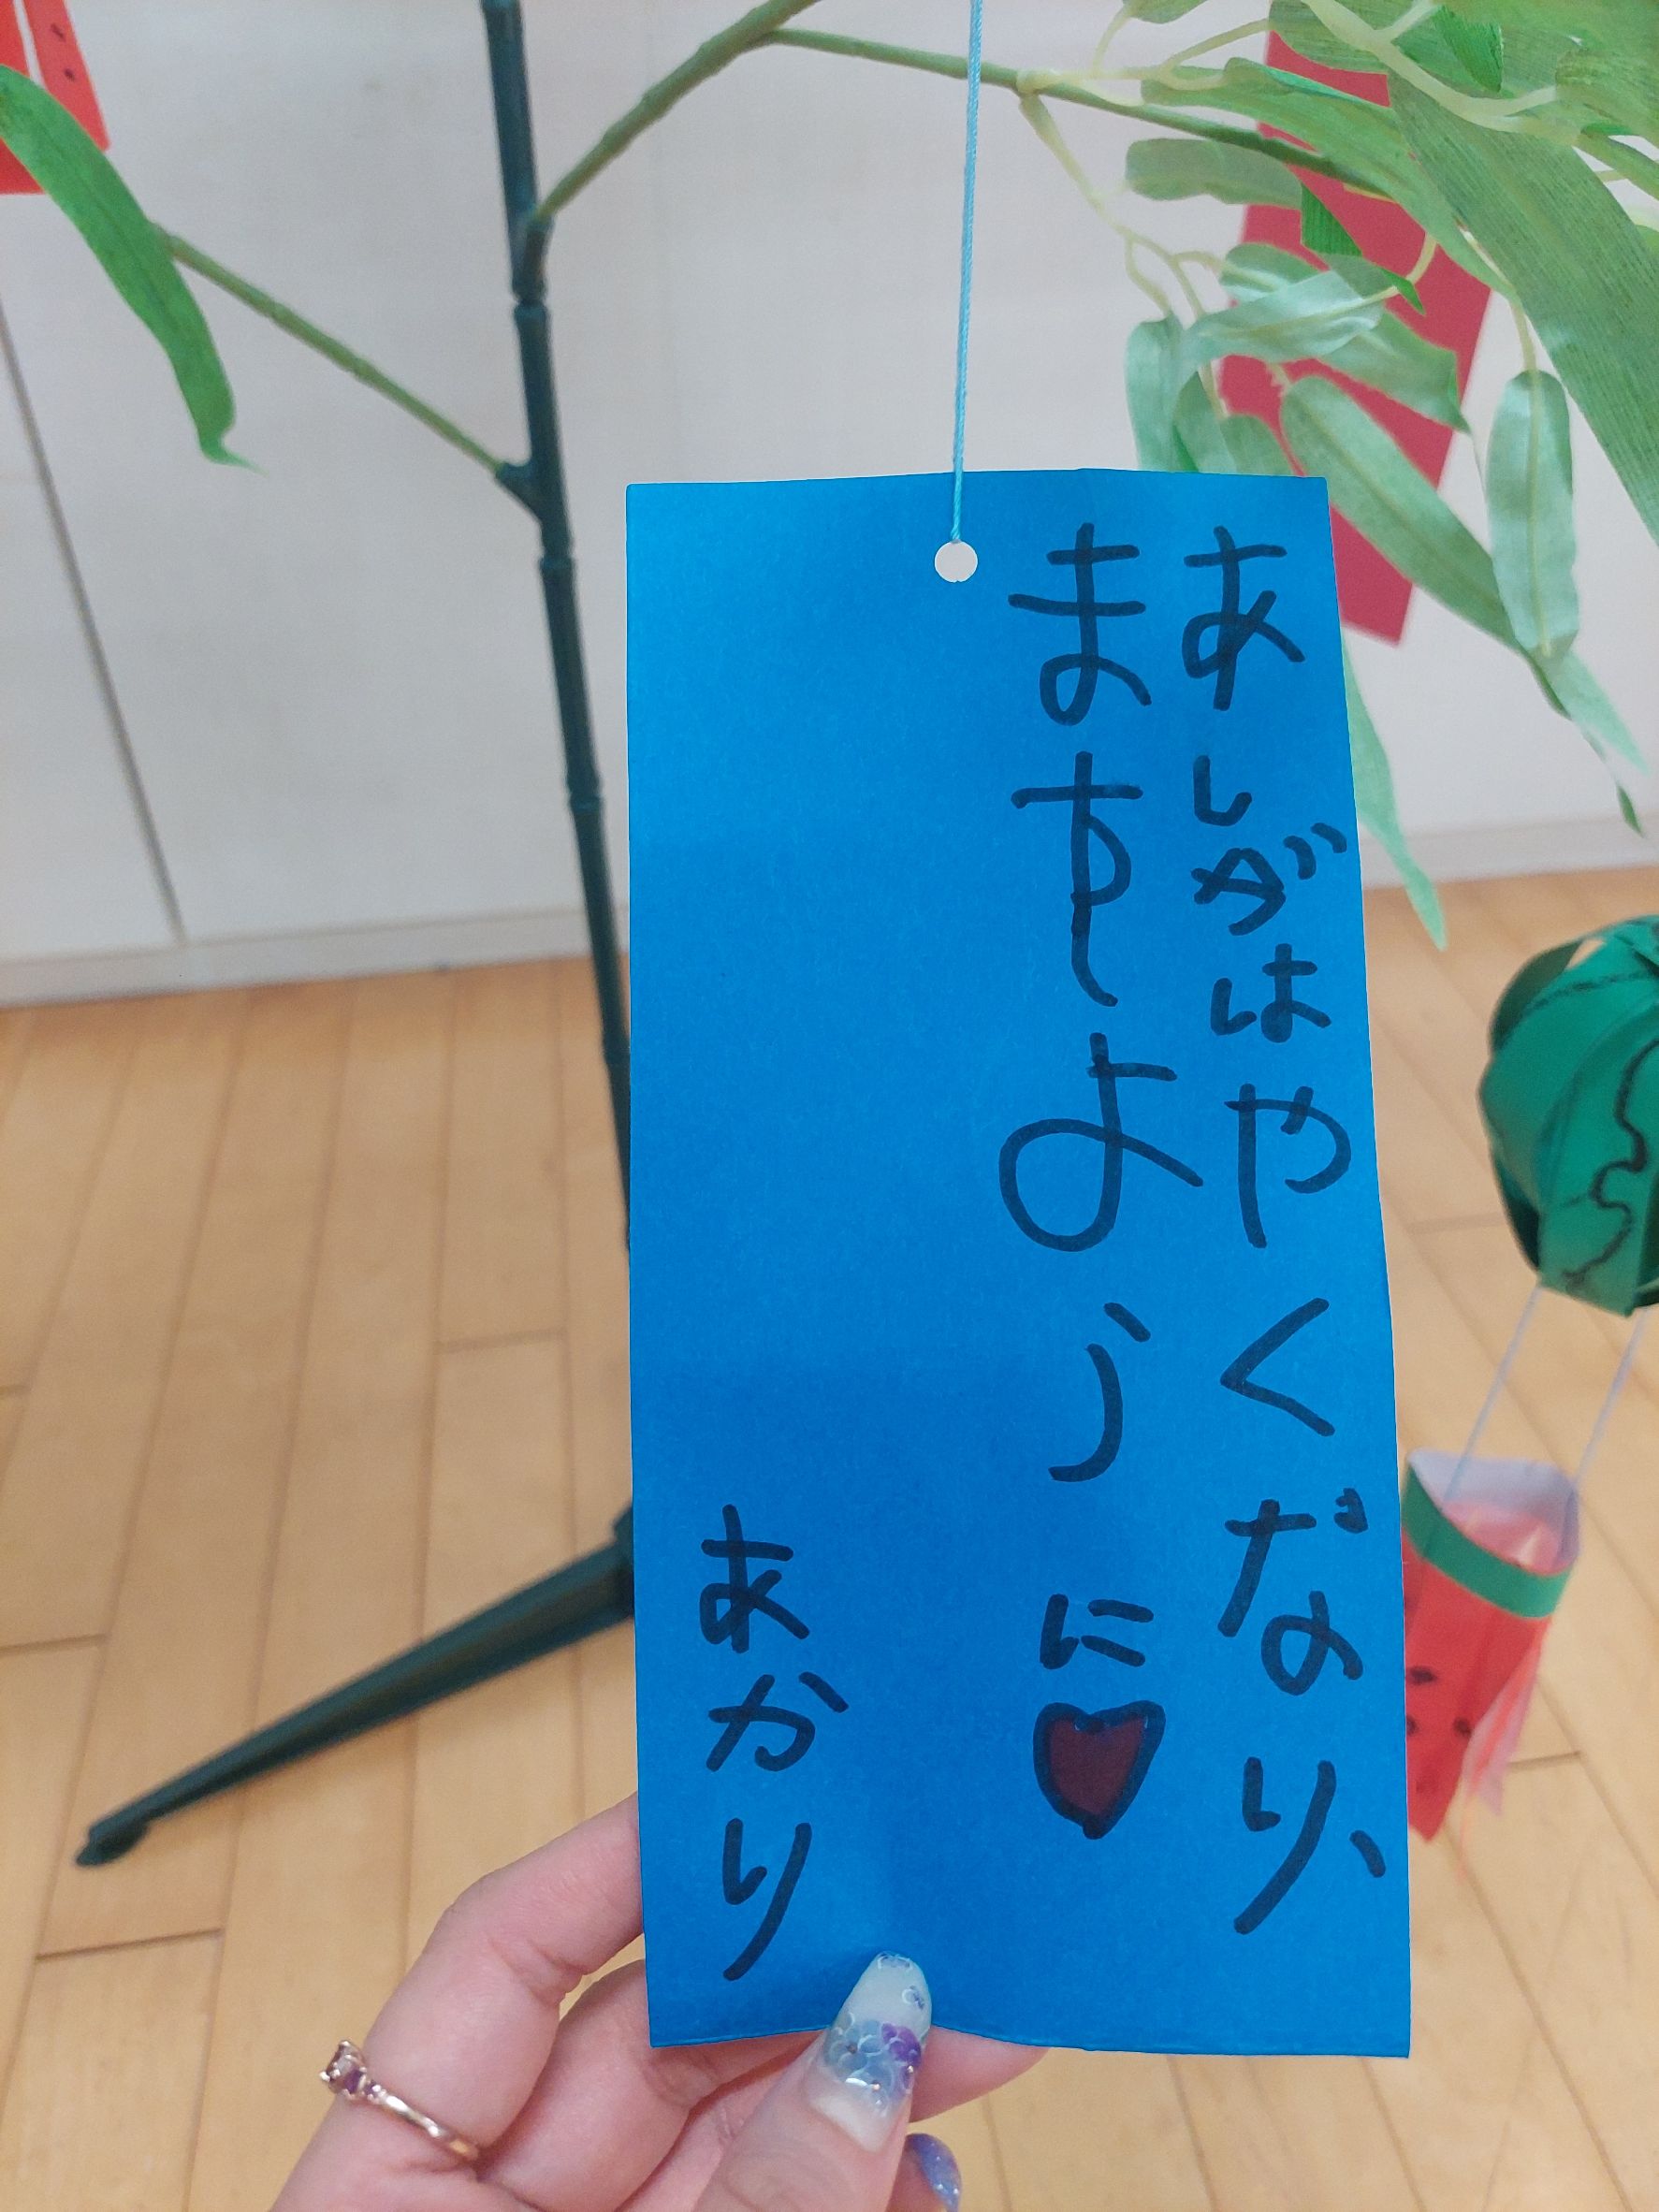 あしがはやくなり、
ますように♥
あかり